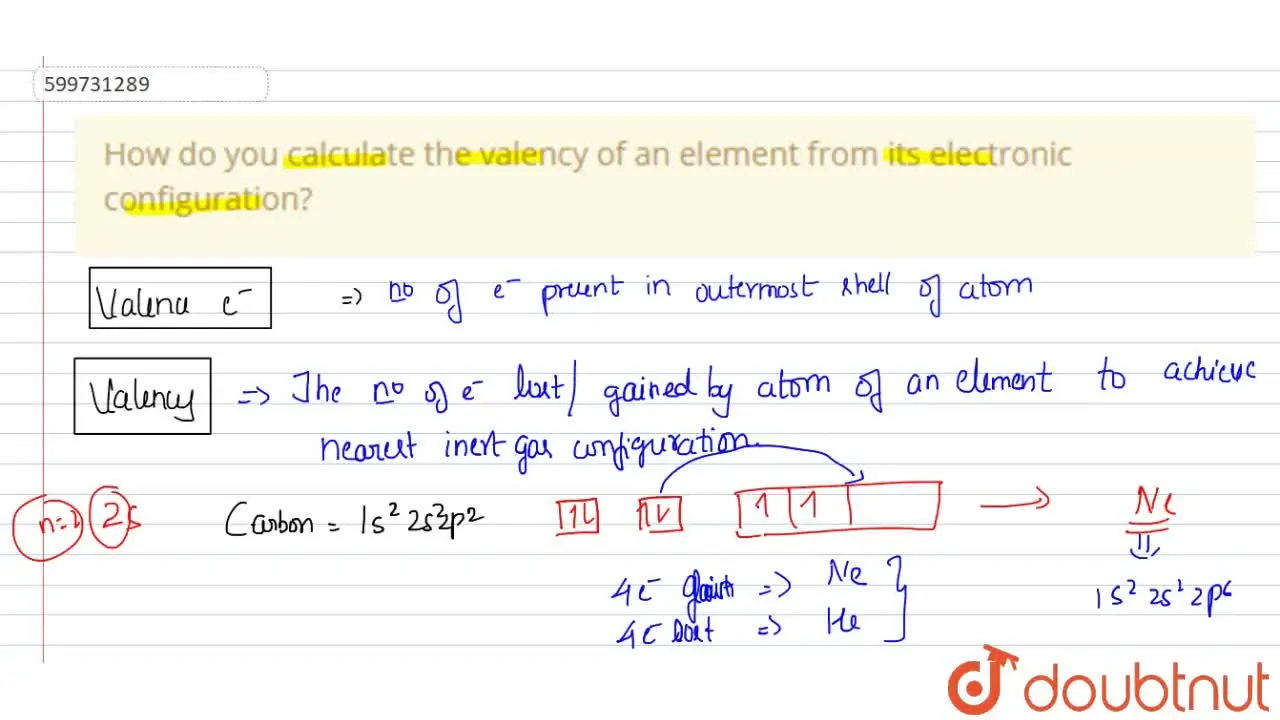 599731289
How do you calculate the valency of an element from its electronic
configuration?
Valena e⁻ => no of e⁻ present in outermost shell of atom
Valency => The no of e⁻ lost/gained by atom of an element to achieve
nearest inert gas configuration.
n=2 2s Carbon = 1s² 2s²2p² 1L 1V 1 1 → Ne
4e⁻ => Ne
1s² 2s² 2p6
4e⁻ lost => He
doubtnut